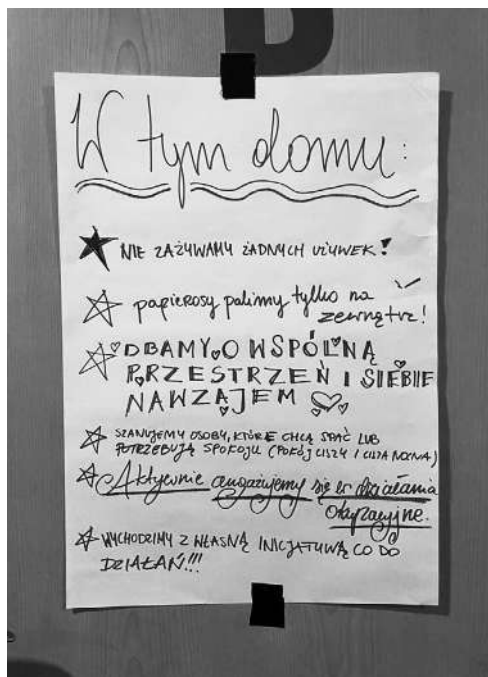 W tym domu:
NIE ZAŻYWAMY ŻADNYCH UŻYWEK!
papierosy palimy tylko na
zewnątrz!
DBAMY O WSPÓLNĄ
PRZESTRZEŃ I SIEBIE
NAWZAJEM
SZANUJEMY OSOBY, KTÓRE CHCĄ SPAĆ LUB
POTRZEBUJĄ SPOKOJU (POKÓJ CISZY I CISZA NOCNA)
Aktywnie angażujemy się w działania
okupacyjne.
WYCHODZIMY Z WŁASNĄ INICJATYWĄ CO DO
DZIAŁAŃ!!!